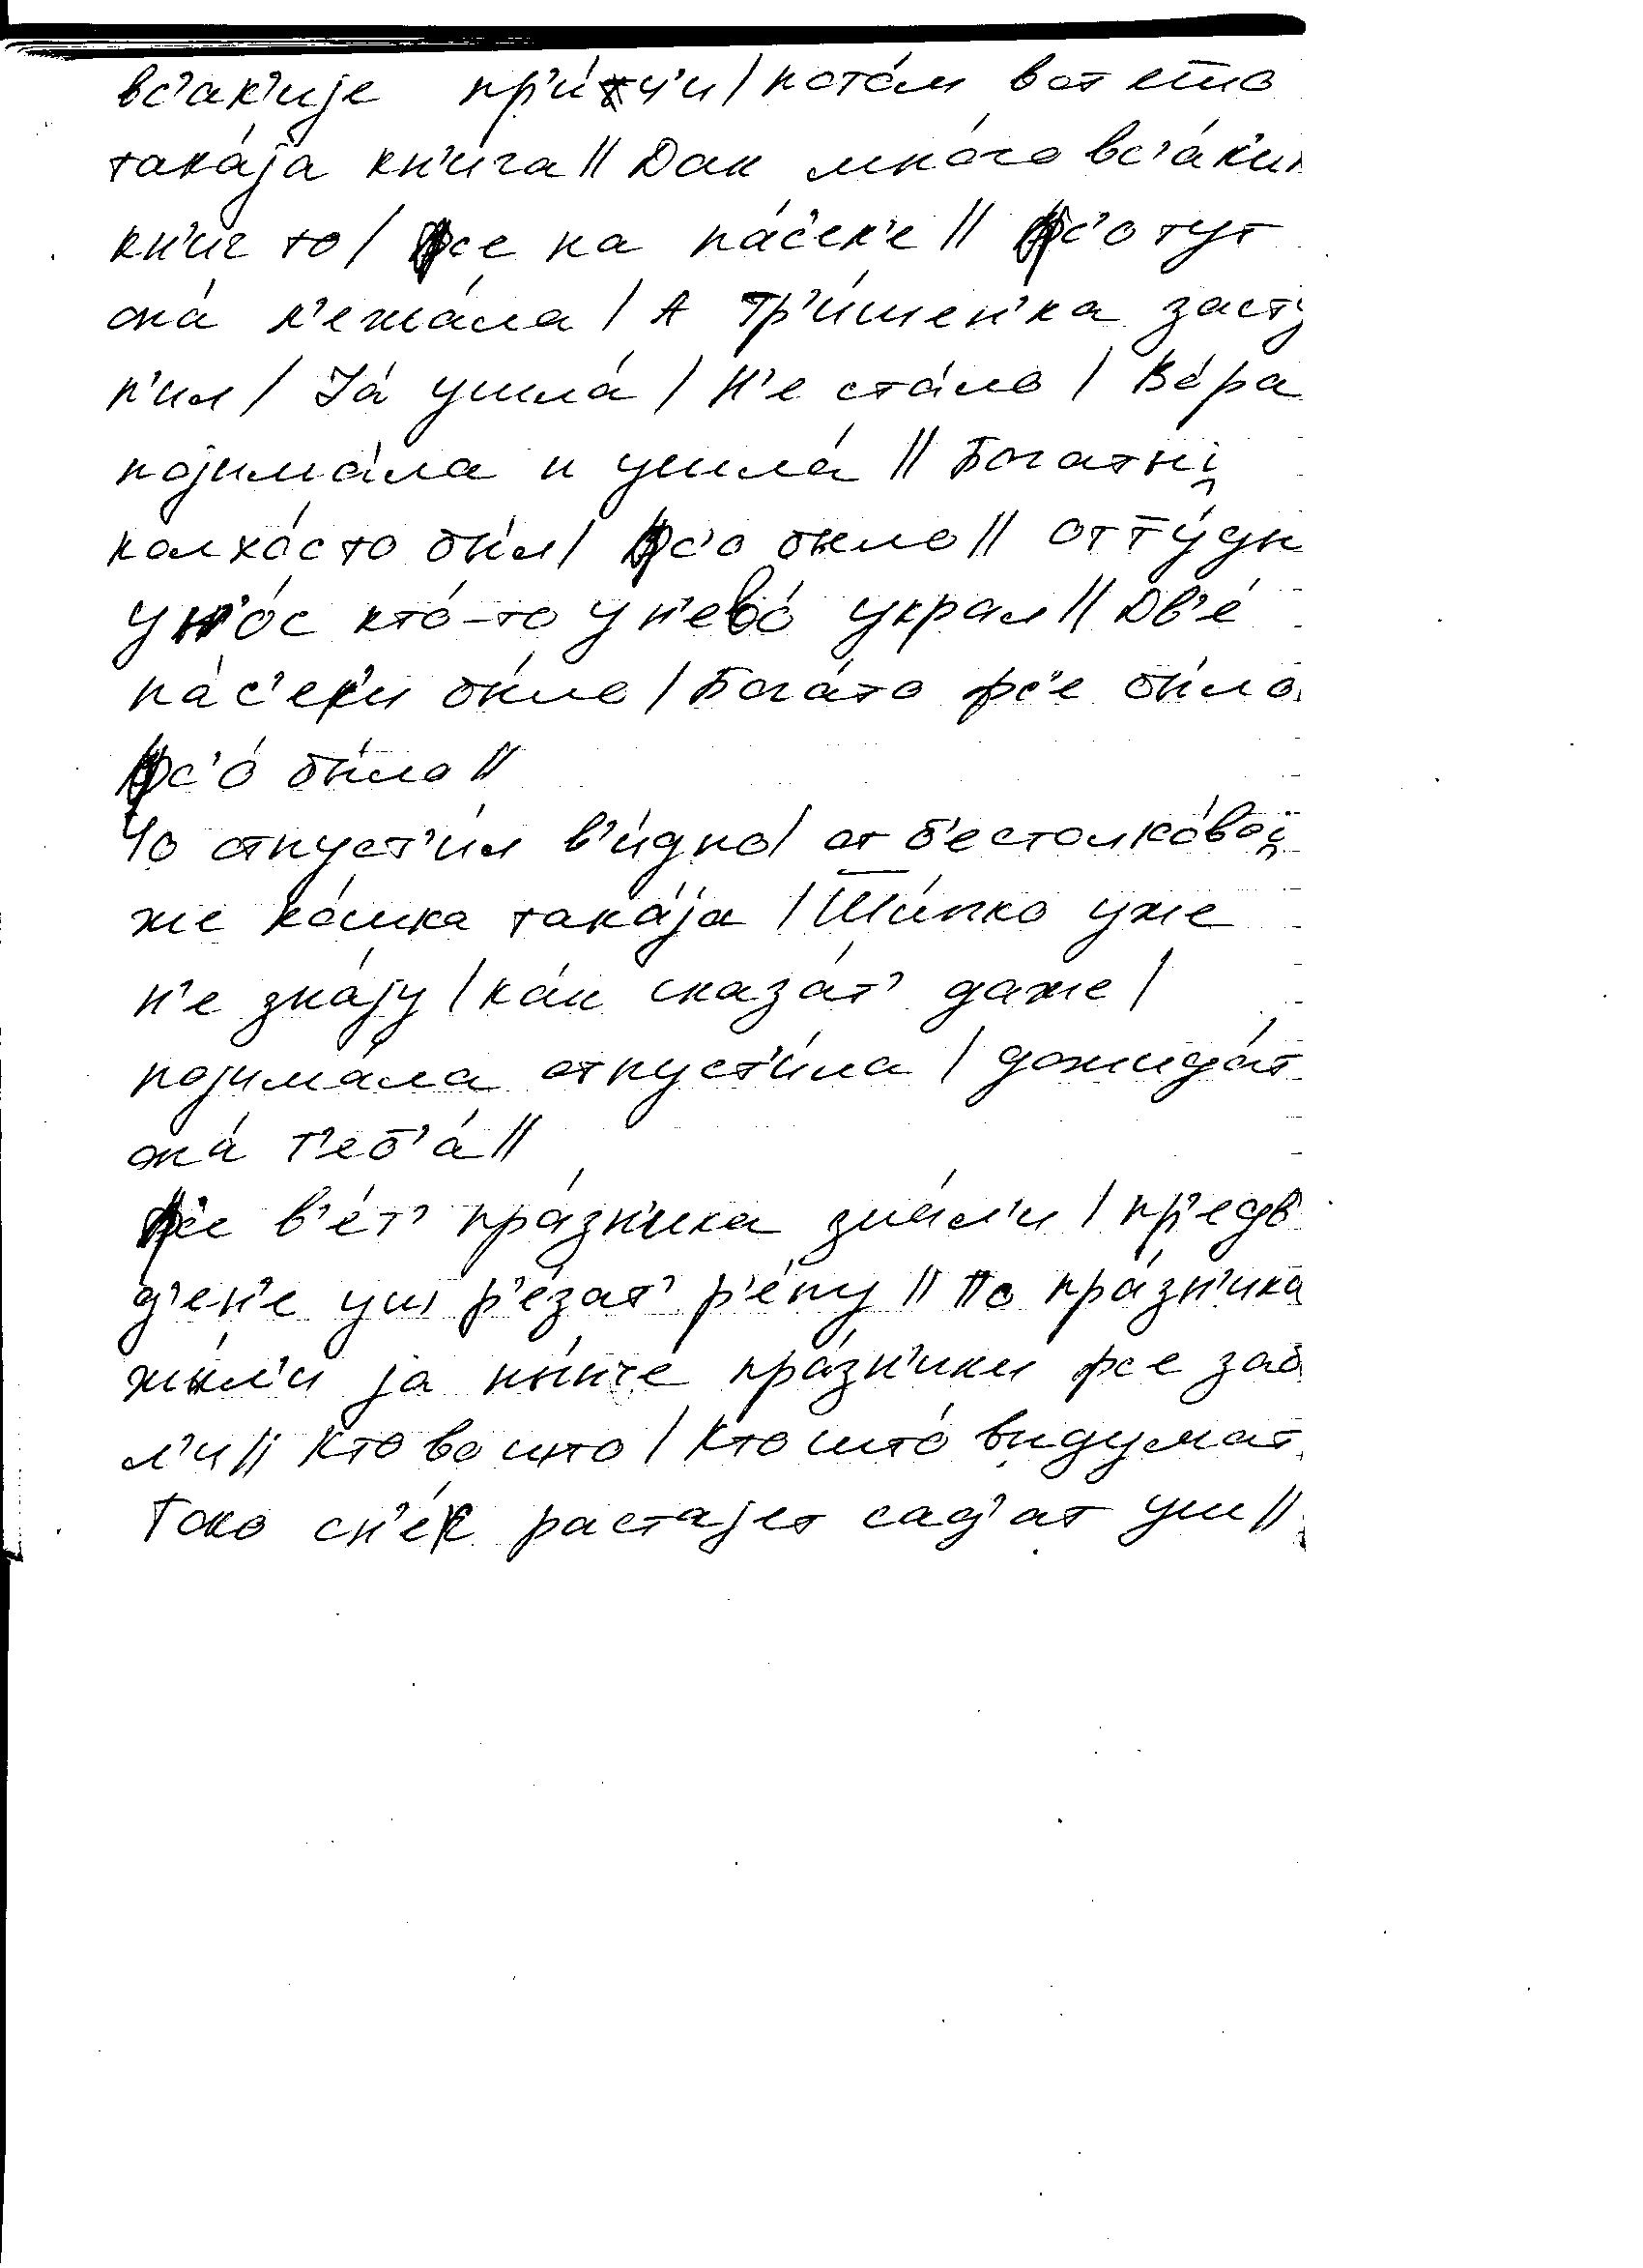 вс'ак'иjе пр'и́тч'и / пото́м вот ето
така́jа кн'и́га // Дак мно́го вс'а́к'их
кн'иг то / фсе на па́с'ек'е // фс'о тут
она́ л'ежа́ла / А Гр'и́шен'ка засту
п'ил / Jа́ ушла́ / Н'е ста́ло / Ве́ра
поjима́ла и ушла́ // Богатыi̯
колхо́с то бы́л / фс'о было // от ту́ды
ун'о́с кто́-то у н'ево́ украл // Дв'е́
па́с'ек'и бы́ло / Бога́то фс'е бы́ло
фс'о́ бы́ло //
Чо отпуст'и́л в'и́дно / от б'естолко́воi̯
же ко́шка така́jа / Ши́пко уже
н'е зна́jу / ка́к сказа́т' даже /
поjима́ла отпуст'и́ла / дожида́т
она́ т'еб'а́ //
фс'е в'е́т' пра́зн'ика зна́л'и / пр'едв
д'ен'е уш р'е́зат' р'е́пу // По пра́зн'ика
жы́л'и jа ны́н'че пра́зн'ики фсе заб
л'и // Кто во што / Кто што́ видумат
Токо сн'е́к растаjет сад'ат уш //